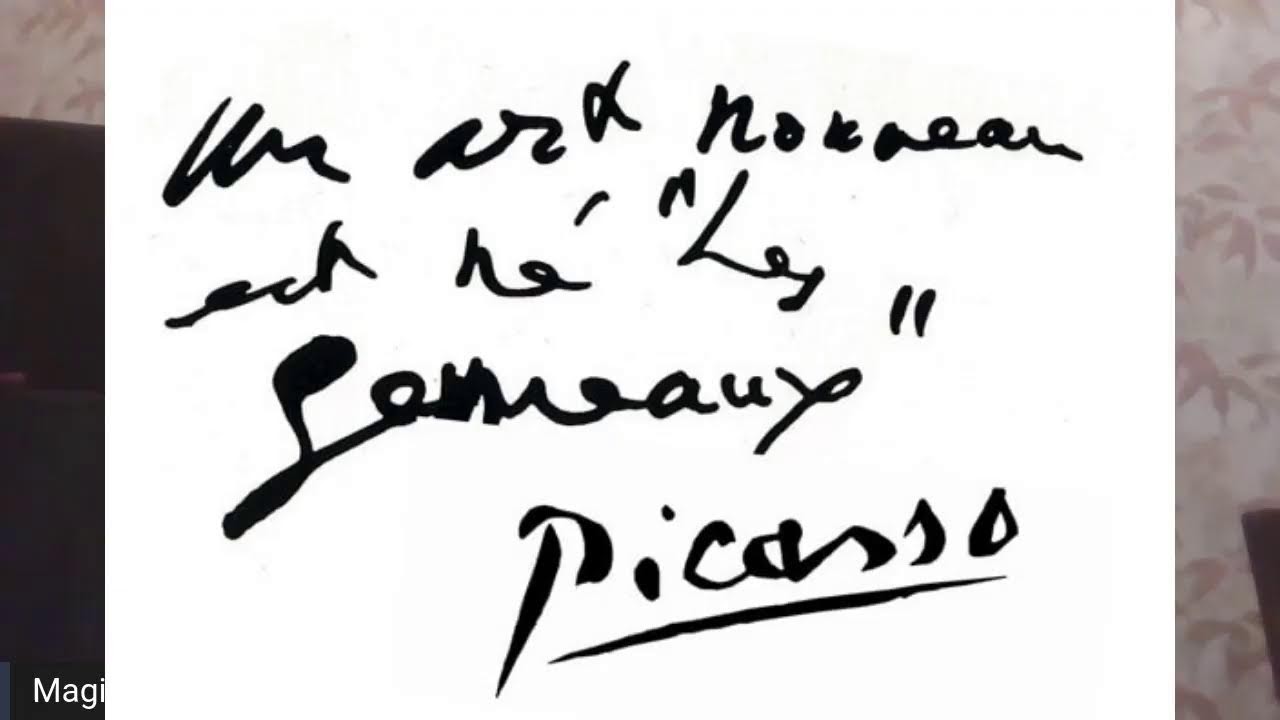 Un art nouveau
est né "Les
Gemeaux"
Picasso
Magi